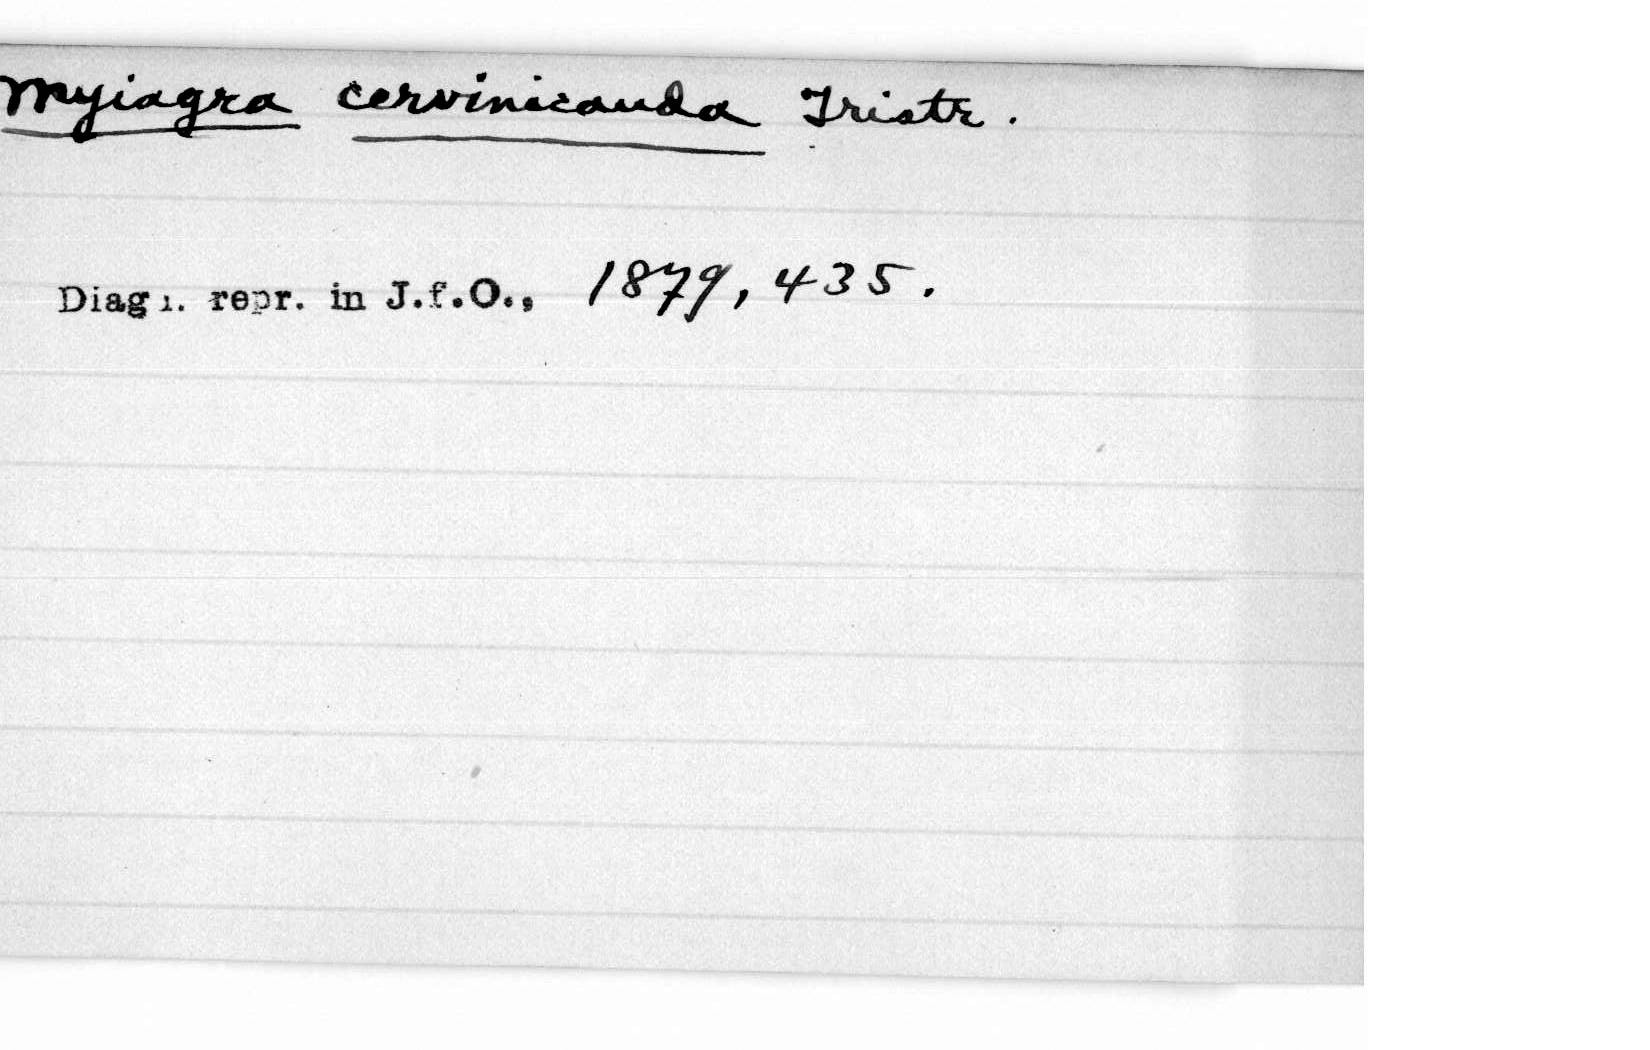 Myiagra cervinicauda Tristr.
Diagn. repr. in J.f.O., 1879, 435.